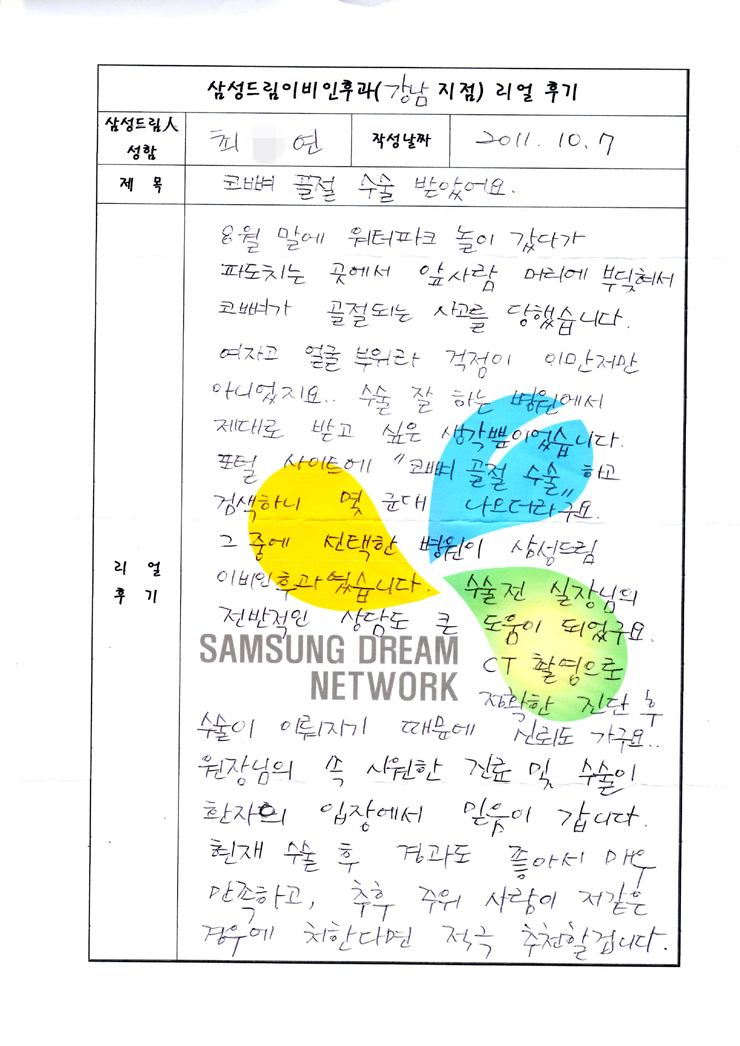 삼성드림이비인후과(강남 지점) 리얼 후기
삼성드림人 성함
최 연
작성날짜
2011. 10. 7
제 목
코뼈 골절 수술 받았어요.
리 얼 후 기
8월 말에 워터파크 놀이 갔다가
파도치는 곳에서 앞사람 머리에 부딪혀서
코뼈가 골절되는 사고를 당했습니다.
여자고 얼굴 부위라 걱정이 이만저만
아니었지요.. 수술 잘 하는 병원에서
제대로 받고 싶은 생각뿐이었습니다.
포털 사이트에 "코뼈 골절 수술" 하고
검색하니 몇 군대 나오더라구요.
그 중에 선택한 병원이 삼성드림
이비인후과였습니다. 수술전 실장님의
전반적인 상담도 큰 도움이 되었구요.
SAMSUNG DREAM
NETWORK
CT 촬영으로
정확한 진단 후
수술이 이뤄지기 때문에 신뢰도 가구요..
원장님의 쏙 시원한 진료 및 수술이
환자의 입장에서 믿음이 갑니다.
현재 수술 후 경과도 좋아서 매우
만족하고, 추후 주위 사람이 저같은
경우에 처한다면 적극 추천할겁니다.